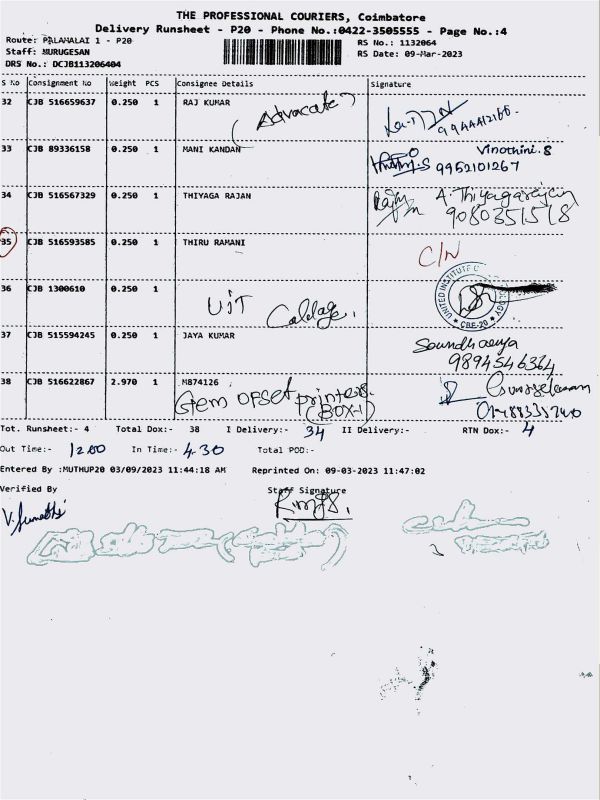 THE PROFESSIONAL COURIERS, Coimbatore
Delivery Runsheet - P20 - Phone No.:0422-3505555 - Page No.:4
Route: PALAMALAI 1 - P20
RS No.: 1132064
Staff: MURUGESAN
RS Date: 09-Mar-2023
DRS No.: DCJB113206404
S No Consignment No Weight PCS Consignee Details Signature
32 CJB 516659637 0.250 1 RAJ KUMAR
(Advocate)
33 CJB 89336158 0.250 1 MANI KANDAN Vinothini.S
9952101267
34 CJB 516567329 0.250 1 THIYAGA RAJAN A.Thiyagarajan
9080351518
35 CJB 516593585 0.250 1 THIRU RAMANI
C/N
36 CJB 1300610 0.250 1
UIT College.
UNITED INSTITUTE OF TECHNOLOGY
CBE-20
37 CJB 515594245 0.250 1 JAYA KUMAR Soundharya
9894546364
38 CJB 516622867 2.970 1 M874126
Gem Ofset printers.
(BOX-1)
Tot. Runsheet:- 4 Total Dox:- 38 I Delivery:- 34 II Delivery:- RTN Dox:- 4
Out Time:- 12.00 In Time:- 4.30 Total POD:-
Entered By :MUTHUP20 03/09/2023 11:44:18 AM Reprinted On: 09-03-2023 11:47:02
Verified By Staff Signature